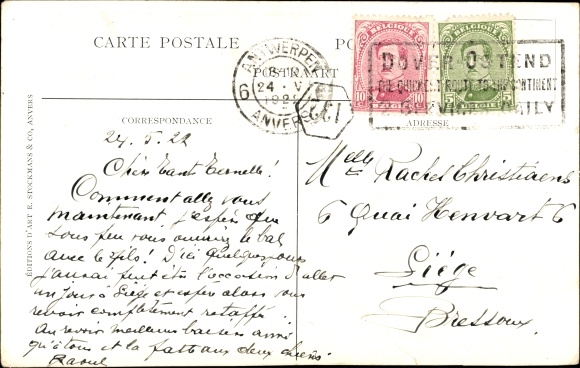 CARTE POSTALE
POSTKAART
ANTWERPEN
6
24 · V
ANVERS
132
BELGIQUE
BELGIQUE
10 10
5 5
DOVER-OSTEND
THE QUICKEST ROUTE TO THE CONTINENT
DAILY
CORRESPONDANCE
ADRESSE
ÉDITIONS D'ART E. STOCKMANS & CO, ANVERS
24.5.22
Chère Tante
Comment allez vous
maintenant j'espère que
sous peu vous ouvrirez le bal
avec le fils! D'ici quelques jours
j'aurai peut être l'occasion d'aller
un jour à Liège et espère alors vous
revoir complètement retapée.
Au revoir meilleurs baisers ainsi
qu'à tous et la patte aux deux chiens
Raoul
Melle Rachel Christiaens
6 Quai Henvart 6
Liège
Bressoux.